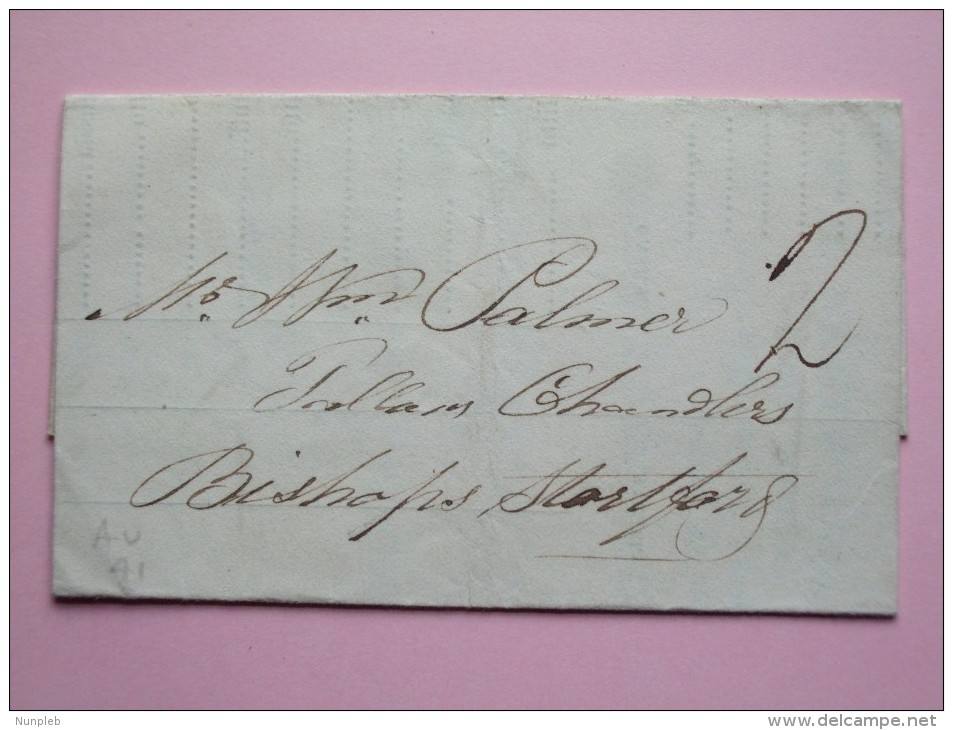 Mr. Wm. Palmer 2
Tallow Chandlers
Bishops Stortford
A-U
91
Nunpleb
delcampe.net